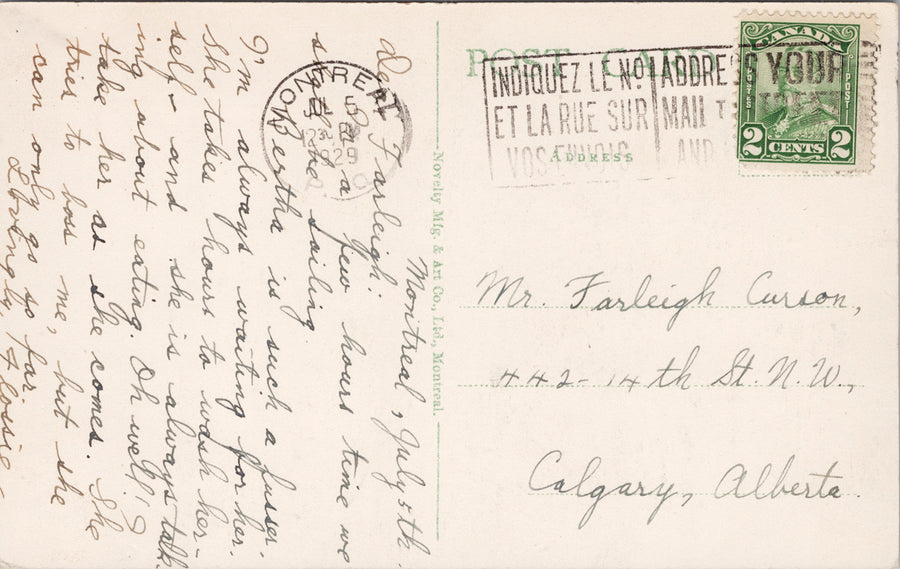 POST CARD
ADDRESS
Montreal, July 5th.
Dear Farleigh:
In a few hours time we
sail.
are sailing.
Bertha is such a fusser.
I'm always waiting for her.
She takes hours to wash her-
self - and she is always talk
ing about eating. Oh well! I
take her as she comes. She
tries to boss me, but she
can only go so far.
Lovingly, Flossie
MONTREAL
5
29
INDIQUEZ LE NO.
ET LA RUE SUR
VOS ENVOIS
ADDRESS YOUR
MAIL TO STREET
AND
CANADA
POSTES
POST
2 CENTS 2
Novelty Mfg. & Art Co., Ltd., Montreal.
Mr. Farleigh Curson,
442-14th St. N.W.,
Calgary, Alberta.